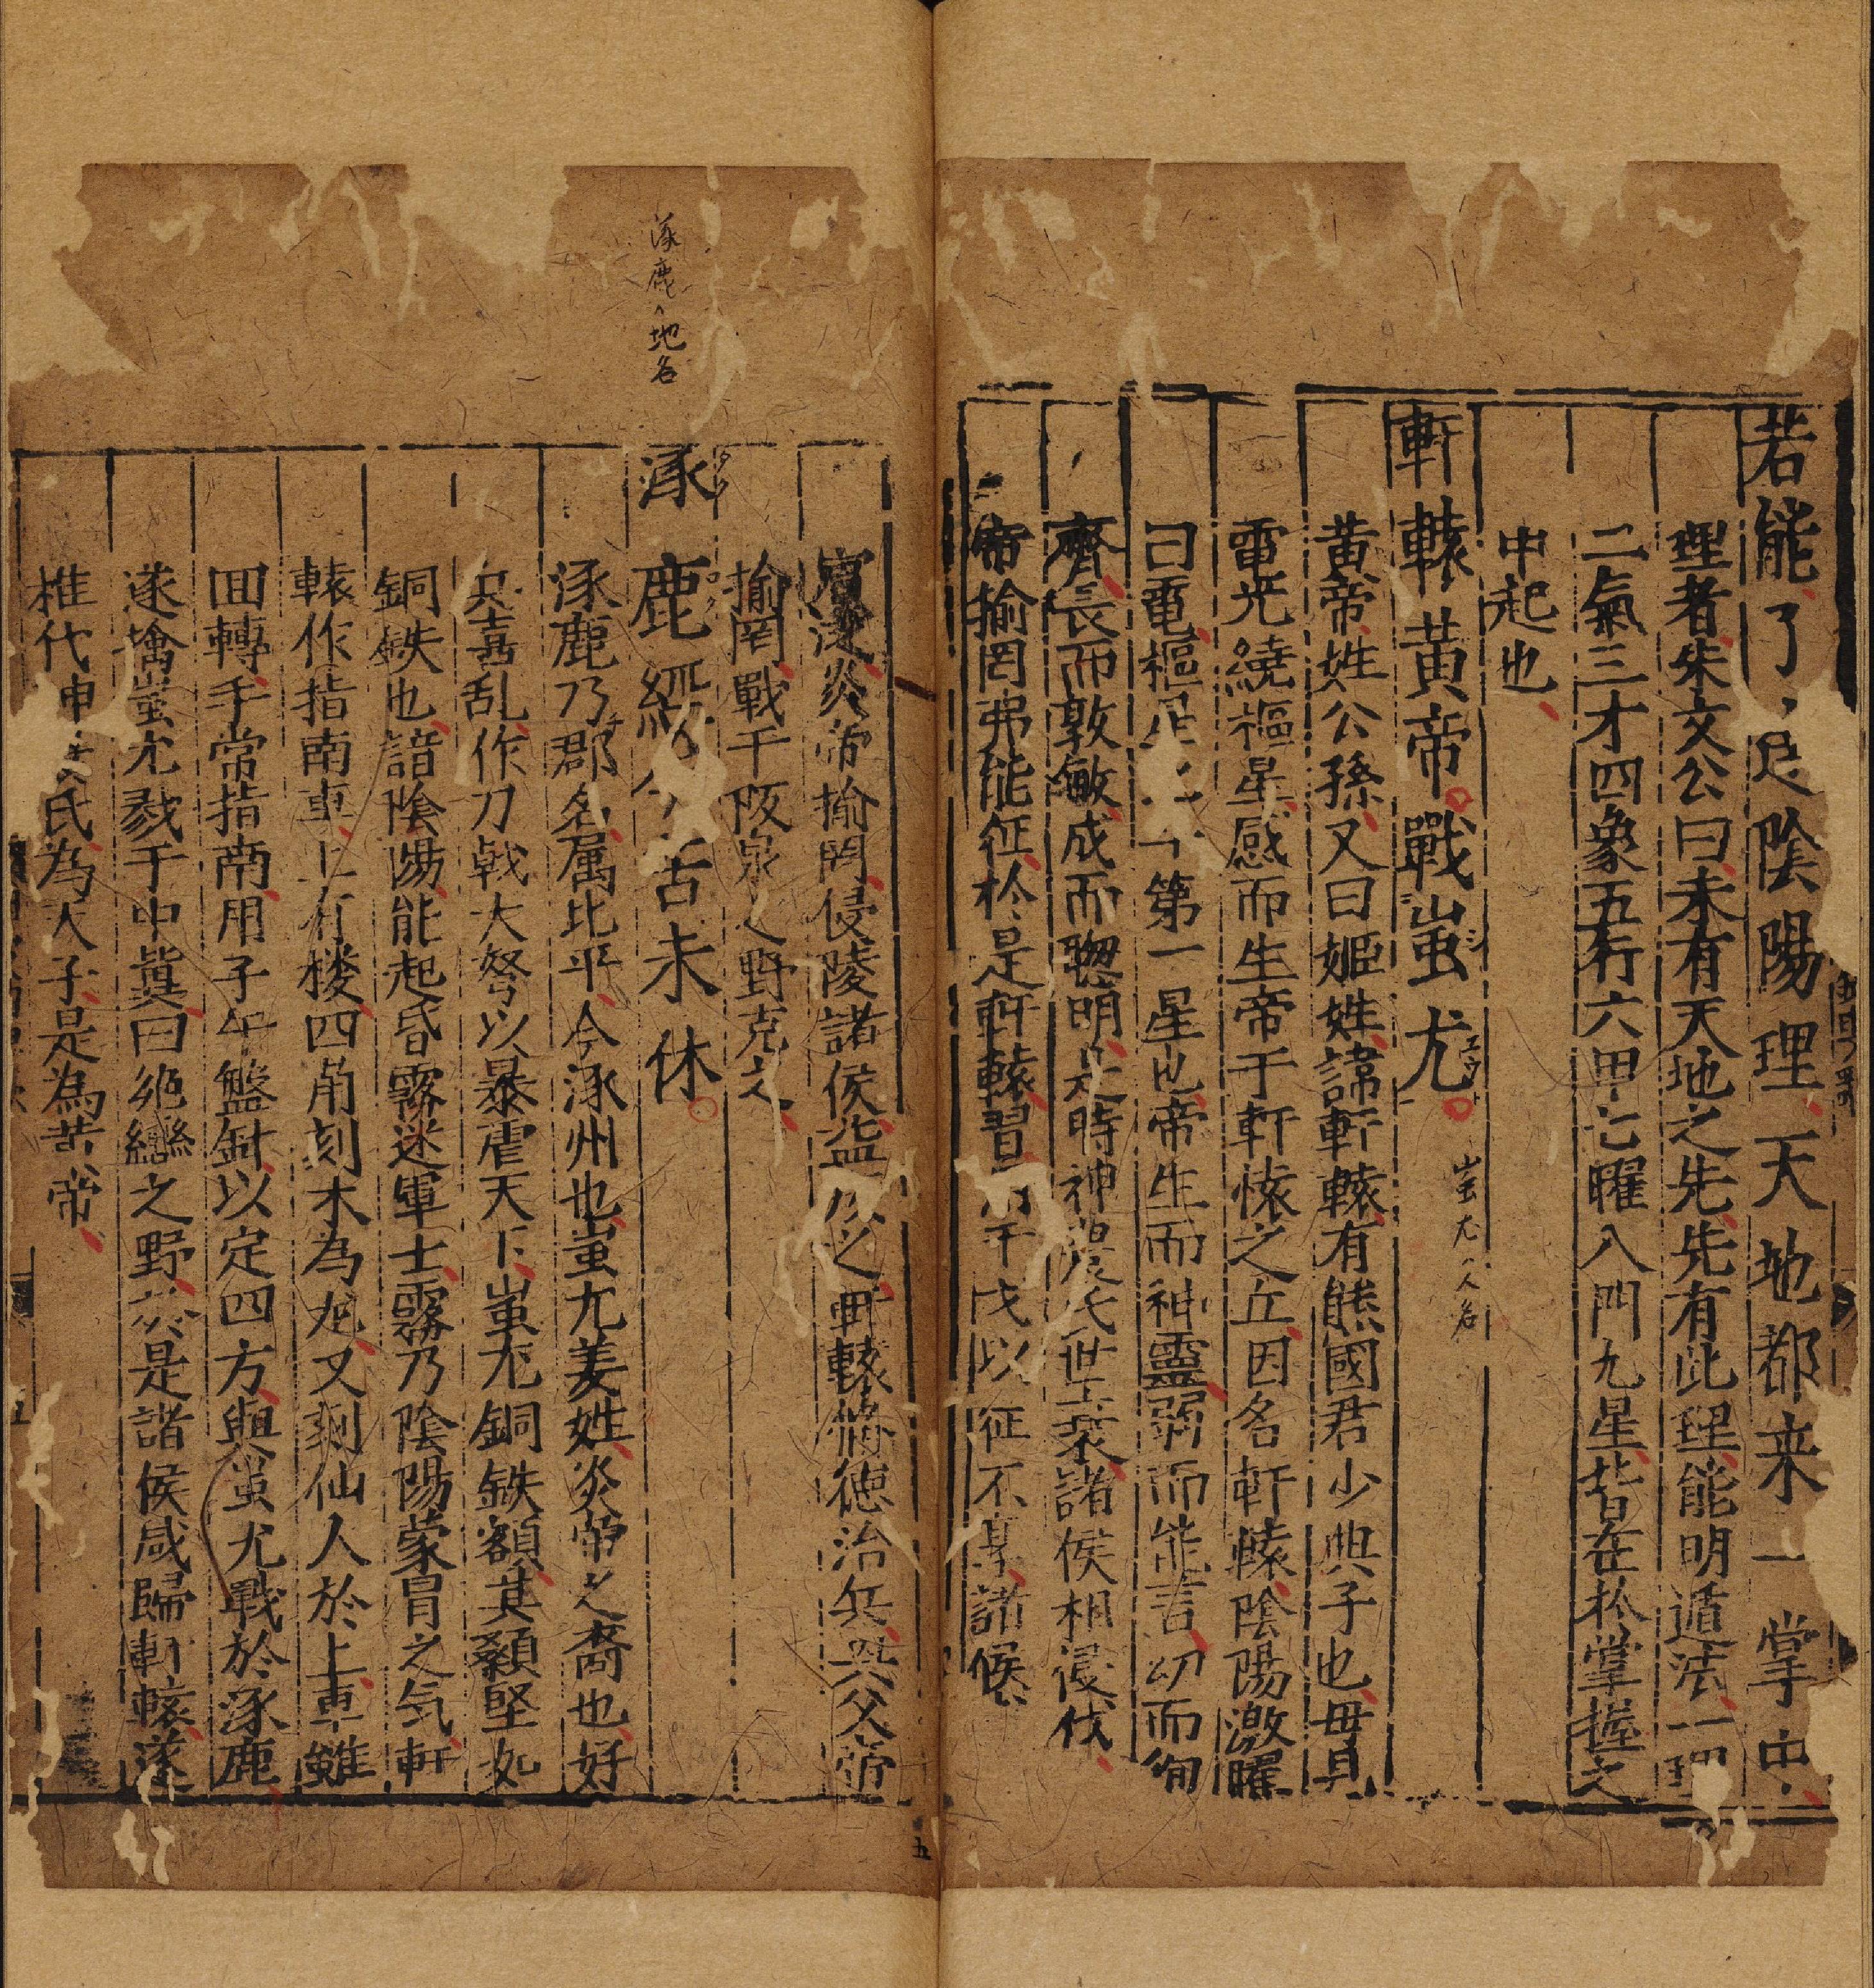 若能了達陰陽理天地都来一掌中
理者朱文公曰未有天地之先先有此理能明遁法一理
二氣三才四象五行六甲七曜八門九星皆在於掌握之
中起也
軒轅黃帝戰蚩尤
蚩尤人名
黃帝姓公孫又曰姬姓諱軒轅有熊國君少典子也母見
電光繞樞星感而生帝于軒轅之丘因名軒轅陰陽激曜
曰電樞星第一星也帝生而神靈弱而能言幼而徇
齊長而敦敏成而聰明是時神農氏世衰諸侯相侵伐
帝揄罔弗能征於是軒轅習用干戈以征不享諸侯
賓從炎帝揄罔侵陵諸侯益叛之軒轅脩徳治兵與炎帝
揄罔戰于阪泉之野克之
涿鹿地名
涿鹿經今未休
涿鹿乃郡名属北平今涿州也蚩尤姜姓炎帝之裔也好
兵喜乱作刀戟大弩以暴虐天下蚩尤銅鉄額其額堅如
銅鉄也諳陰陽能起昏霧迷軍士霧乃陰陽蒙冒之气軒
轅作指南車上有楼四角刻木為龙又刻仙人於上車雖
囬轉手常指南用子午盤針以定四方與蚩尤戰於涿鹿
遂擒蚩尤戮于中冀曰絶轡之野於是諸侯咸歸軒轅遂
推代神農氏為天子是為黃帝
五